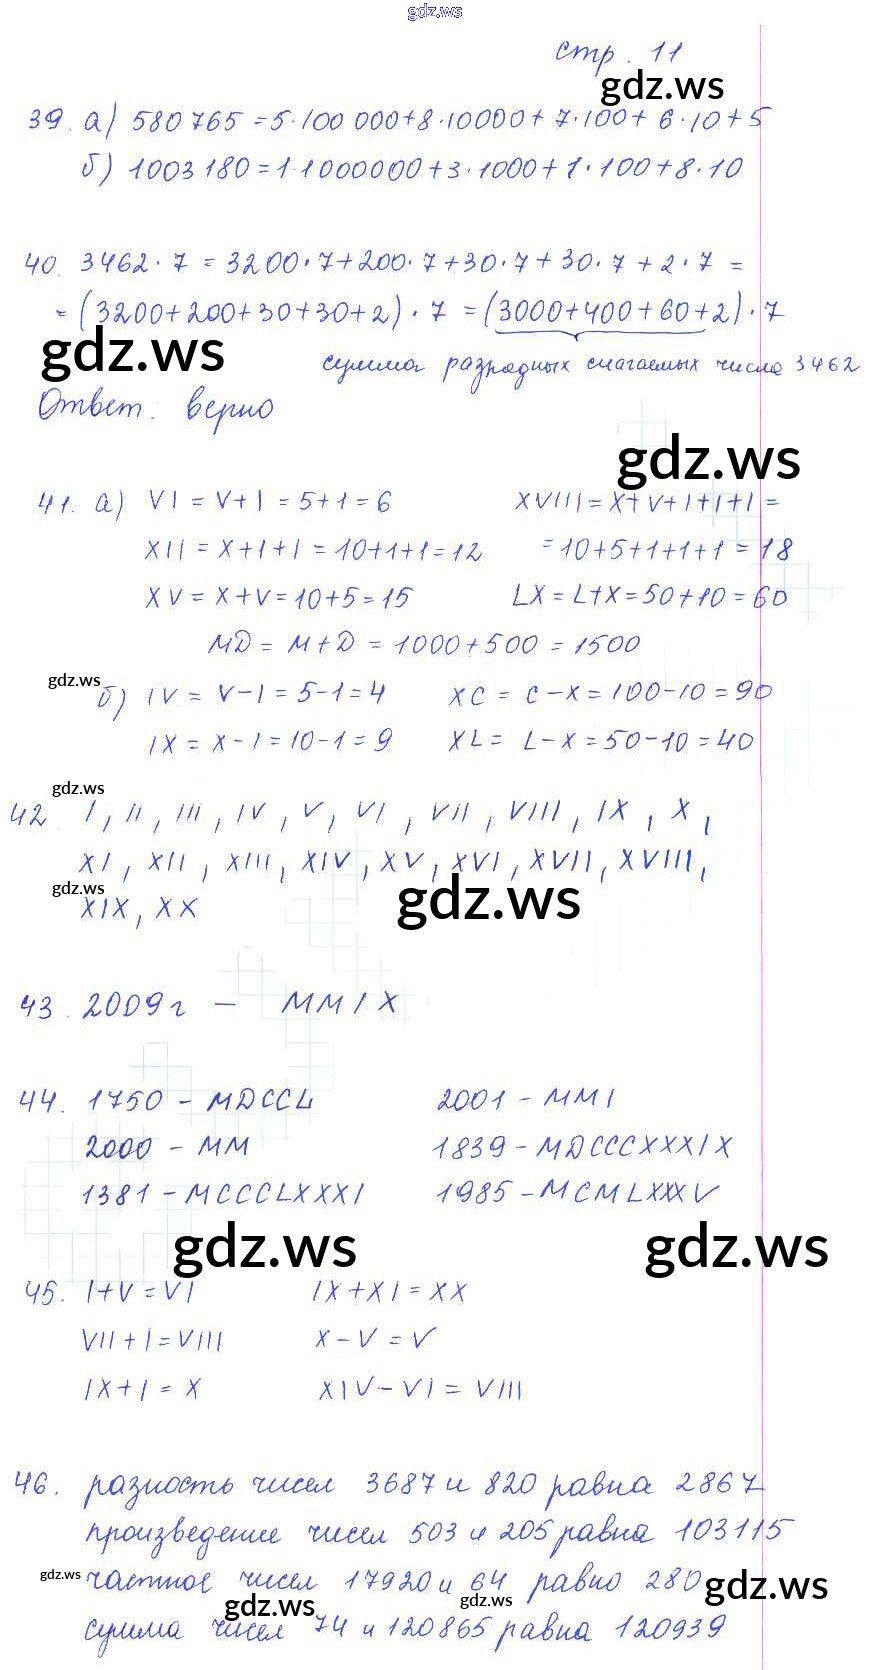 gdz.ws
стр. 11
gdz.ws
39. а) 580 765 = 5·100 000+8·10000+ 7·100+ 6·10+5
б) 1003 180 = 1·1000000+3·1000+1·100+8·10
40. 3462·7 = 3200·7+200·7+30·7+30·7+2·7 =
= (3200+200+30+30+2)·7 = (3000+400+60+2)·7
gdz.ws
сумма разрядных слагаемых числа 3462
Ответ: верно
gdz.ws
41. а) VI = V+I = 5+1=6 XVIII = X+V+I+I+I =
XII = X+I+I = 10+1+1=12 =10+5+1+1+1 = 18
XV = X+V=10+5=15 LX = L+X=50+10=60
MD = M+D = 1000+500 = 1500
gdz.ws
б) IV = V-I = 5-1=4 XC = C-X=100-10=90
IX = X-I=10-1=9 XL = L-X=50-10=40
gdz.ws
42. I, II, III, IV, V, VI, VII, VIII, IX, X,
XI, XII, XIII, XIV, XV, XVI, XVII, XVIII,
gdz.ws
gdz.ws
XIX, XX
43. 2009г - MMIX
44. 1750 - MDCCL 2001 - MMI
2000 - MM 1839 - MDCCCXXXIX
1381 - MCCCLXXXI 1985 - MCMLXXXV
gdz.ws gdz.ws
45. I+V=VI IX+XI=XX
VII+I=VIII X-V=V
IX+I=X XIV-VI=VIII
46. разность чисел 3687 и 820 равна 2867
произведение чисел 503 и 205 равна 103115
gdz.ws частное чисел 17920 и 64 равно 280 gdz.ws
gdz.ws gdz.ws
сумма чисел 74 и 120865 равна 120939